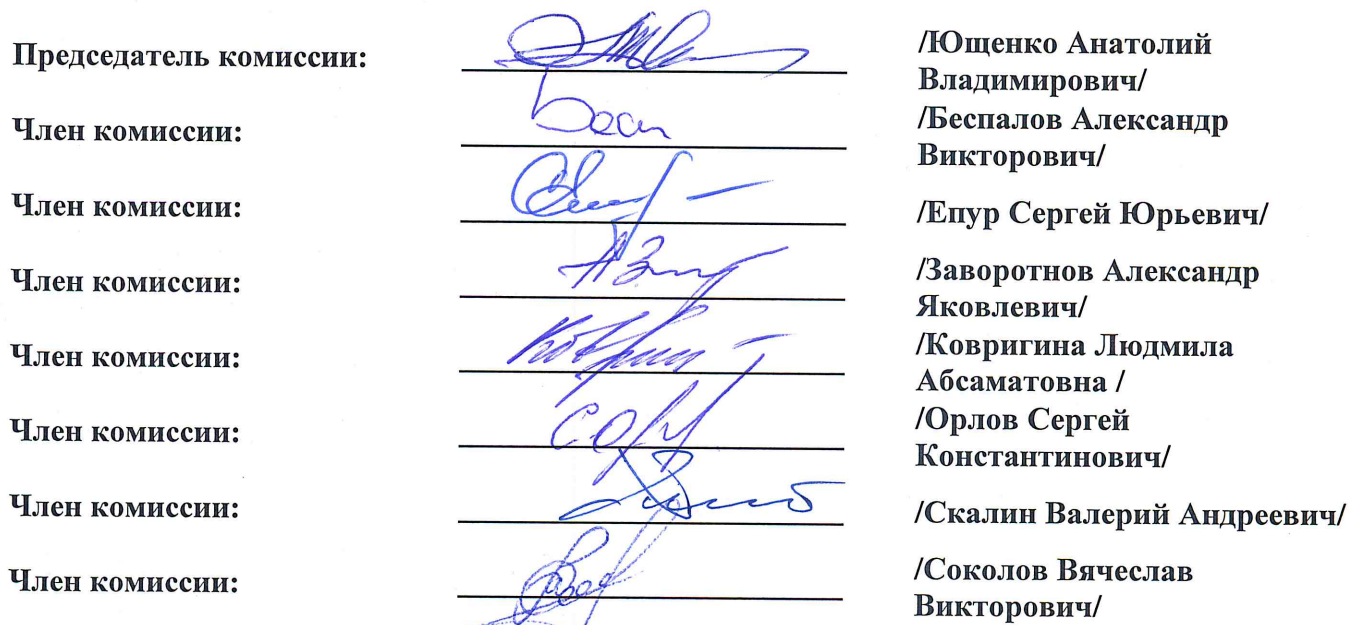 Председатель комиссии: /Ющенко Анатолий
Владимирович/
Член комиссии: /Беспалов Александр
Викторович/
Член комиссии: /Епур Сергей Юрьевич/
Член комиссии: /Заворотнов Александр
Яковлевич/
Член комиссии: /Ковригина Людмила
Абсаматовна /
Член комиссии: /Орлов Сергей
Константинович/
Член комиссии: /Скалин Валерий Андреевич/
Член комиссии: /Соколов Вячеслав
Викторович/